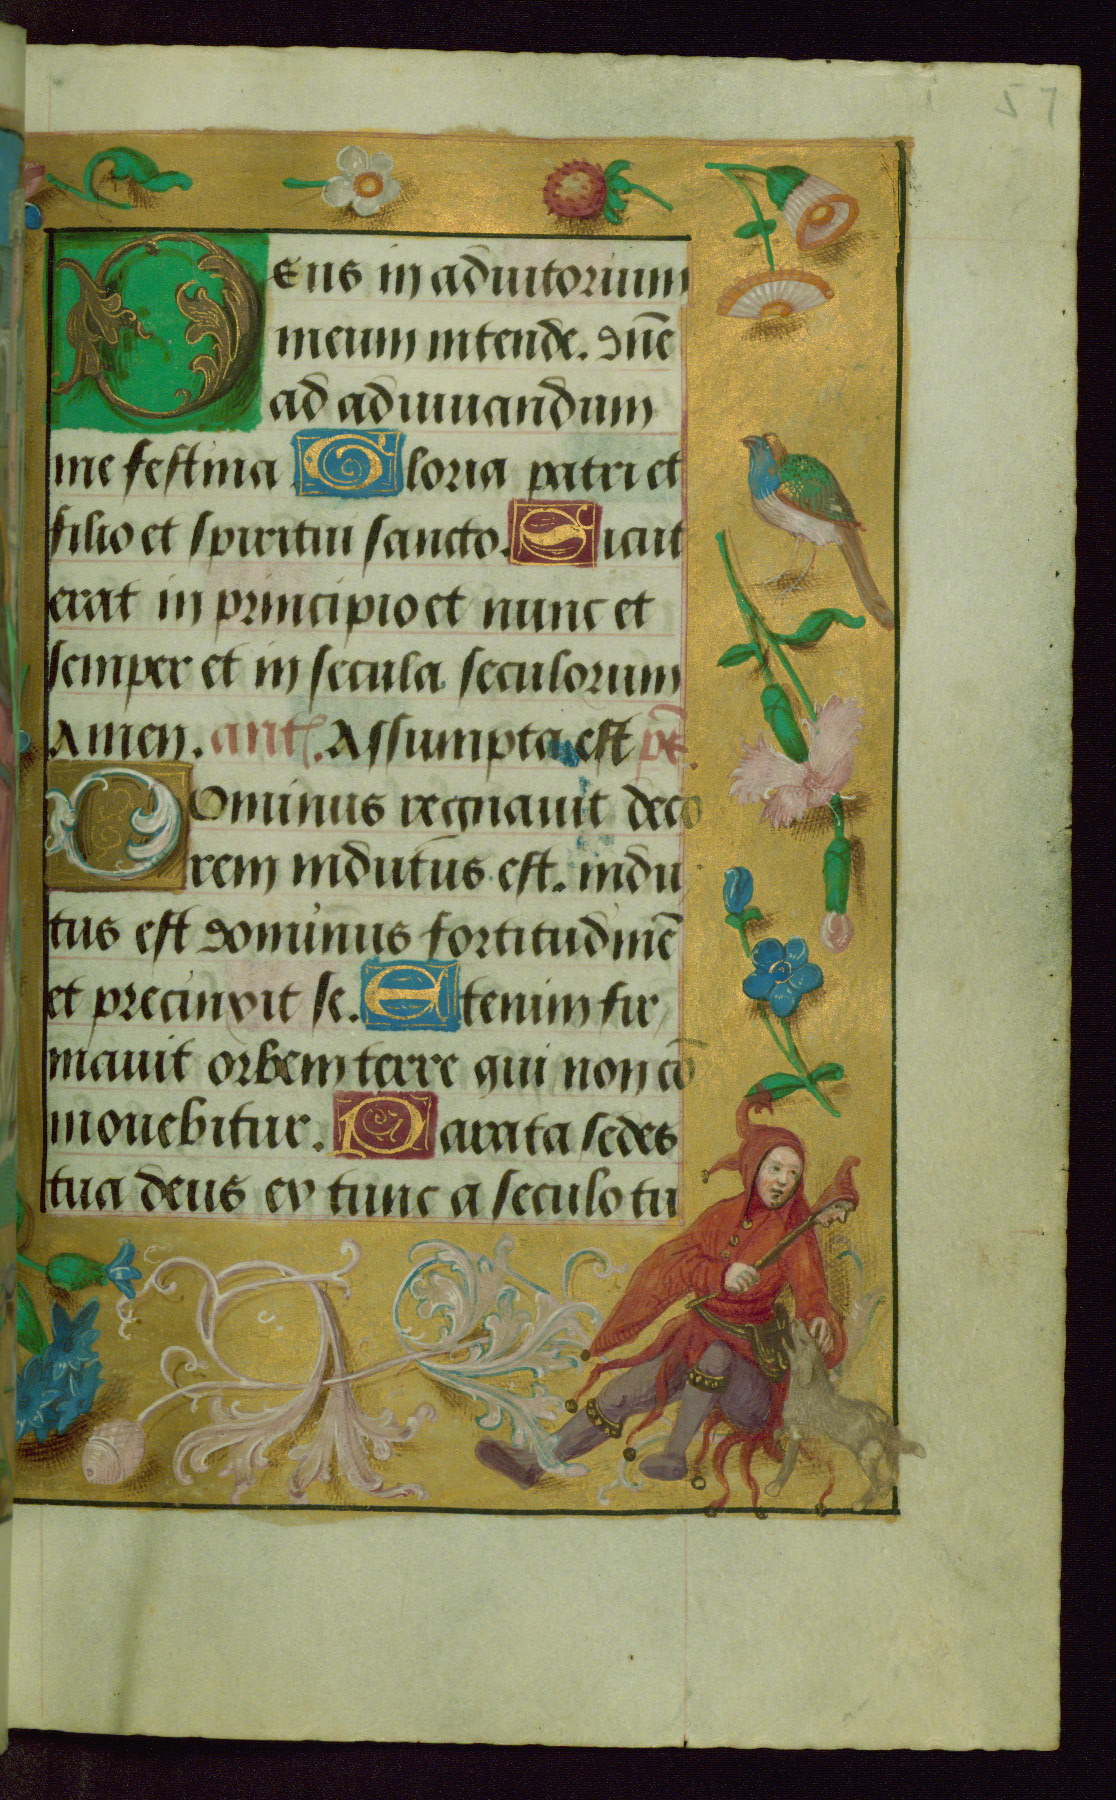 57
Deus in adiutorium
meum intende. dn̄e
ad adiuuandum
me festina Gloria patri et
filio et spiritui sancto. Sicut
erat in principio et nunc et
semper et in secula seculorum
Amen. ant. Assumpta est ps̄.
Dominus regnauit deco
rem indutus est. indu
tus est dominus fortitudinē
et precinxit se. Etenim fir
mauit orbem terre qui non cō
mouebitur. Parata sedes
tua deus ex tunc a seculo tu